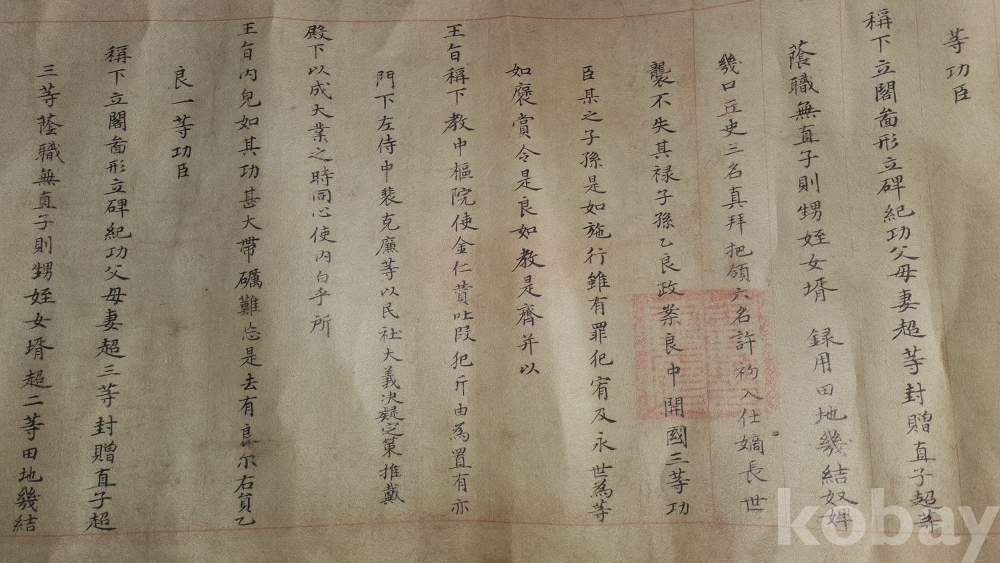 等功臣
稱下立閣啚形立碑紀功父母妻超等封贈直子超等
蔭職無直子則甥姪女壻 録用田地幾結奴婢
幾口丘史三名真拜把領六名許初入仕嫡長世
襲不失其禄子孫乙良政案良中開國三等功
臣某之子孫是如施行雖有罪犯宥及永世為等
如褒賞令是良如教是齊并以
王旨稱下教中樞院使金仁賛吐叚犯斤由為置有亦
門下左侍中裴克廉等以民社大義決疑定策推戴
殿下以成大業之時同心使內白乎所
王旨內皃如其功甚大帶礪難忘是去有良尔右員乙
良一等功臣
稱下立閣啚形立碑紀功父母妻超三等封贈直子超
三等蔭職無直子則甥姪女壻超二等田地幾結
kobay